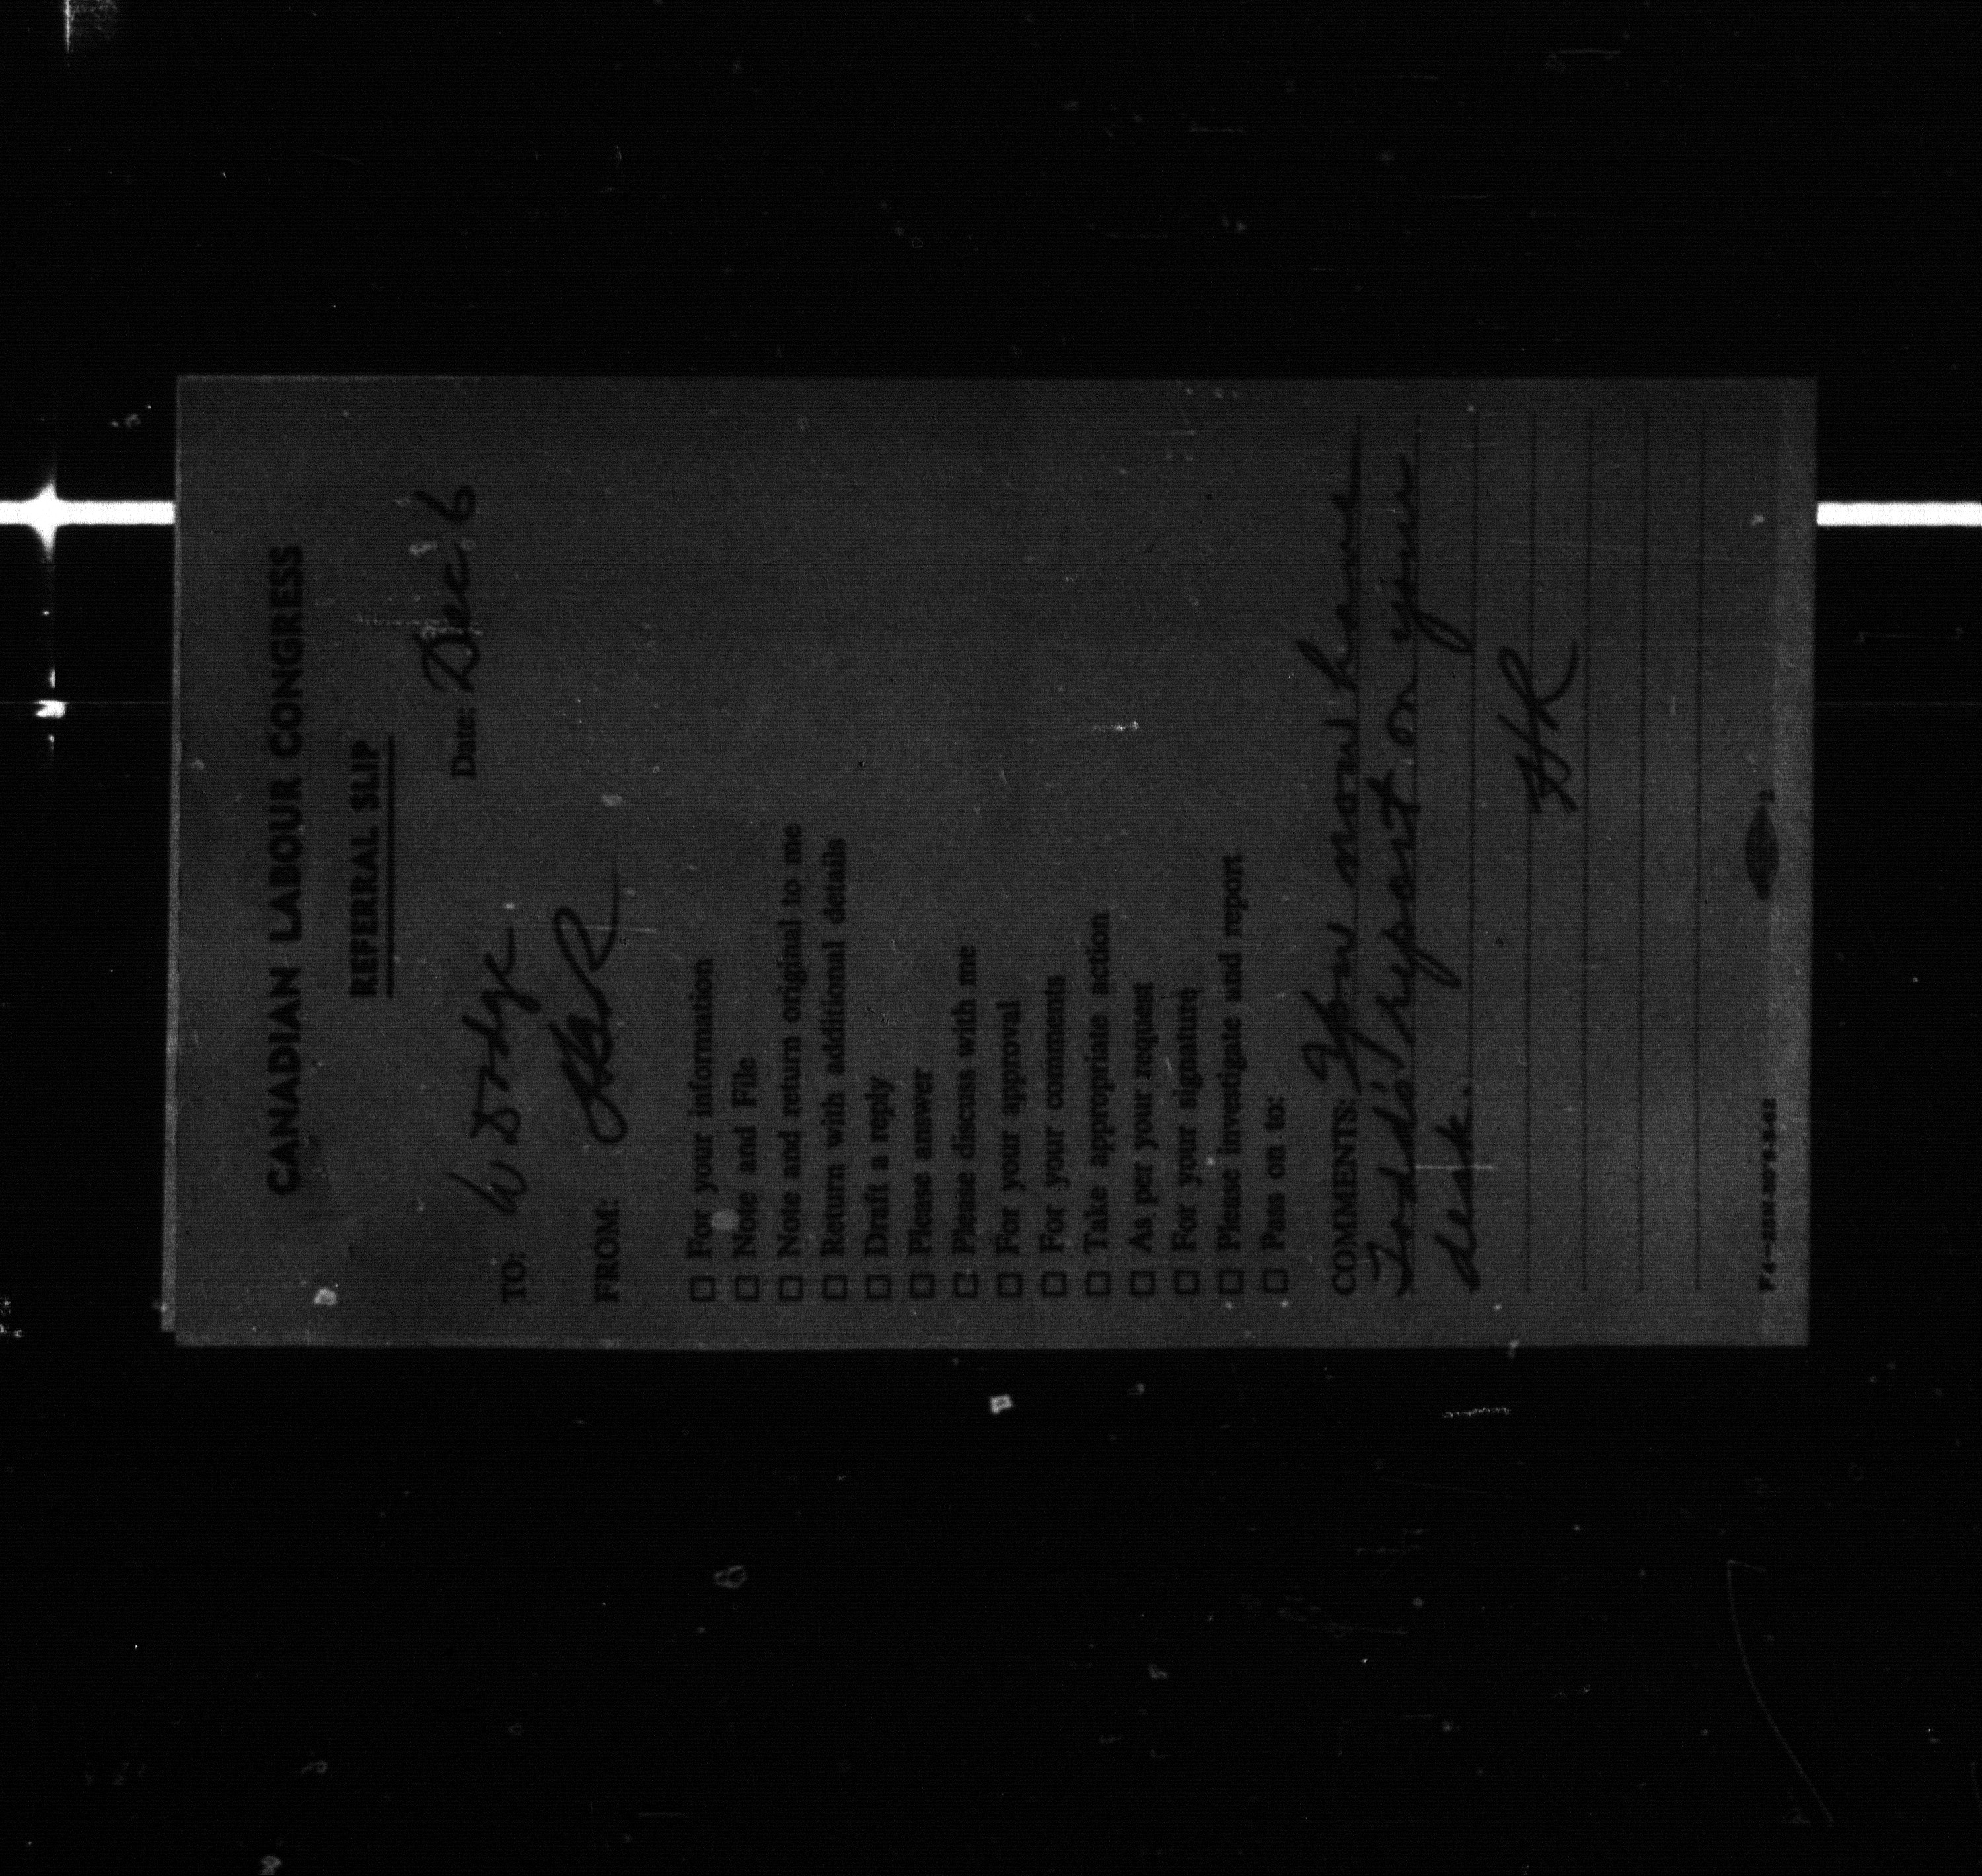 CANADIAN LABOUR CONGRESS
REFERRAL SLIP
Date: Dec 6
TO: W Dodge
FROM:
☐ For your information
☐ Note and File
☐ Note and return original to me
☐ Return with additional details
☐ Draft a reply
☐ Please answer
☐ Please discuss with me
☐ For your approval
☐ For your comments
☐ Take appropriate action
☐ As per your request
☐ For your signature
☐ Please investigate and report
☐ Pass on to:
COMMENTS: You now have
Todd's report on your
desk.
HR
2